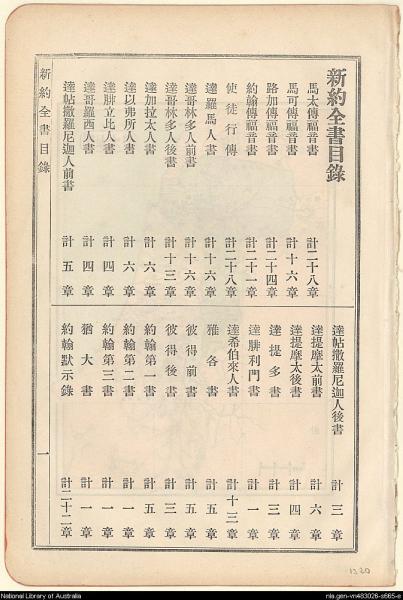 新約全書目錄
馬太傳福音書 計二十八章
馬可傳福音書 計十六章
路加傳福音書 計二十四章
約翰傳福音書 計二十一章
使徒行傳 計二十八章
達羅馬人書 計十六章
達哥林多人前書 計十六章
達哥林多人後書 計十三章
達加拉太人書 計六章
達以弗所人書 計六章
達腓立比人書 計四章
達哥羅西人書 計四章
達帖撒羅尼迦人前書 計五章
達帖撒羅尼迦人後書 計三章
達提摩太前書 計六章
達提摩太後書 計四章
達提多書 計三章
達腓利門書 計一章
達希伯來人書 計十三章
雅各書 計五章
彼得前書 計五章
彼得後書 計三章
約翰第一書 計五章
約翰第二書 計一章
約翰第三書 計一章
猶大書 計一章
約翰默示錄 計二十二章
新約全書目錄 一
1320
National Library of Australia
nla.gen-vn483026-s665-e